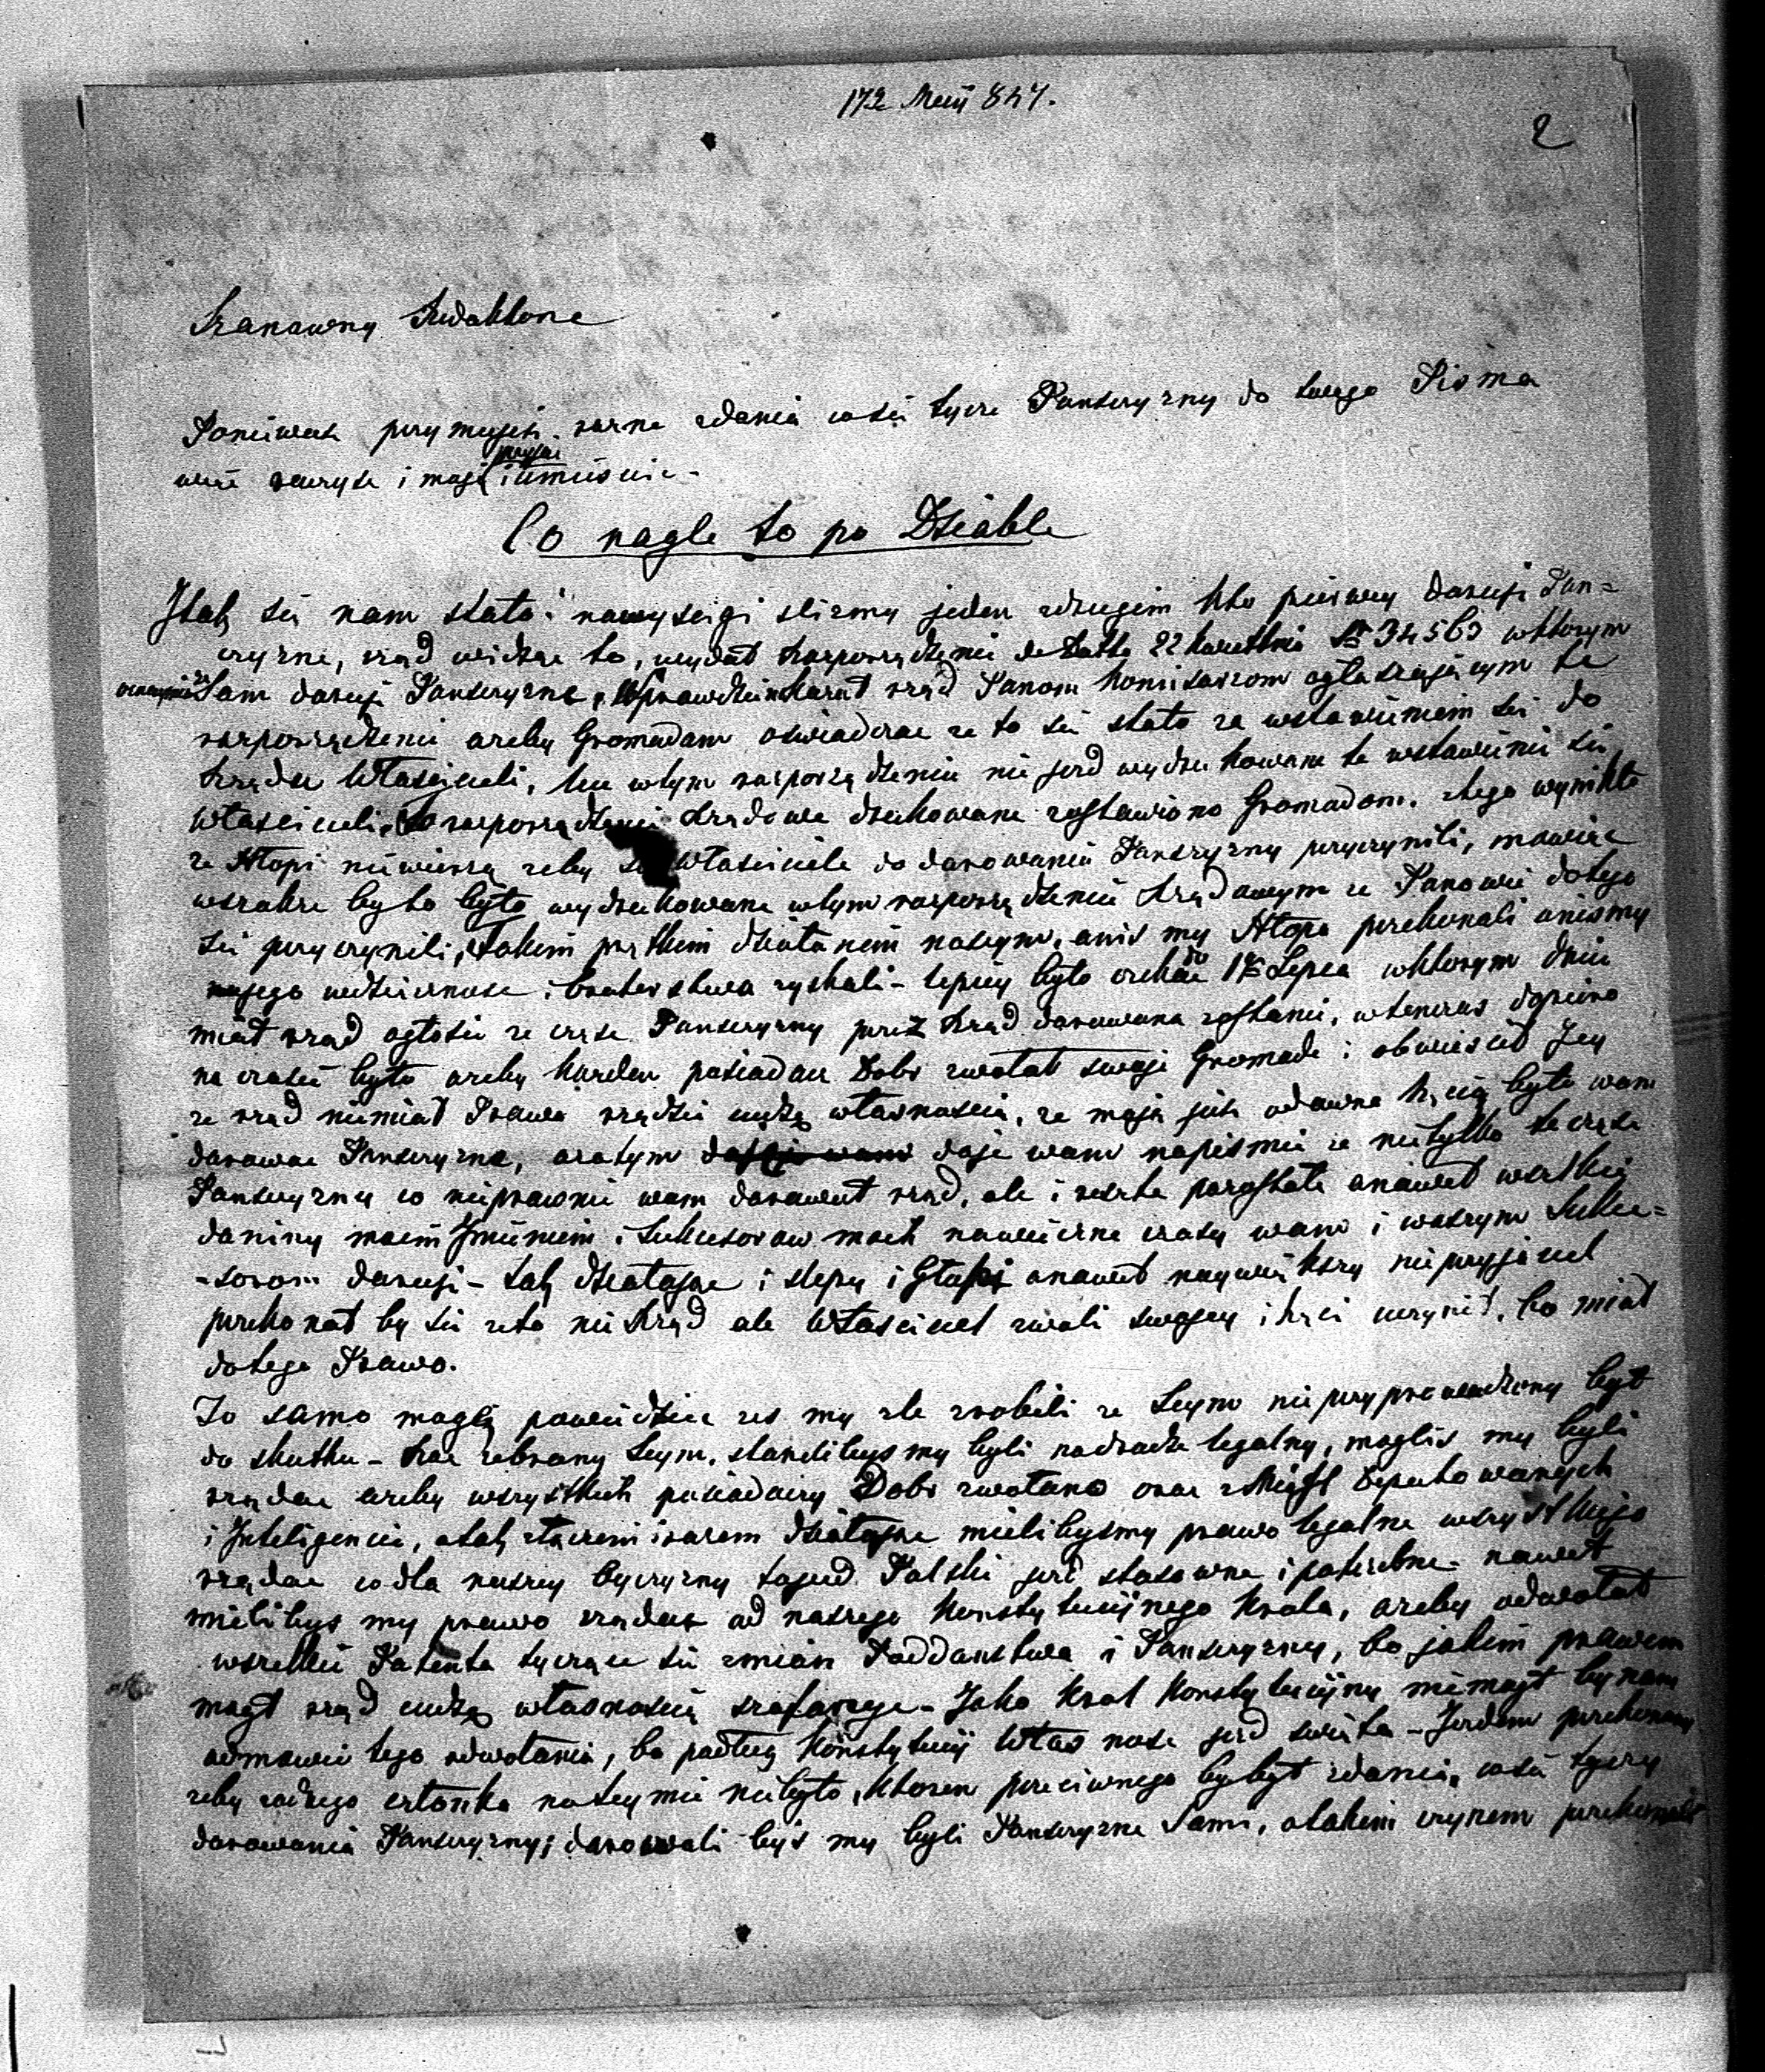 172 Maij 847.
2
Szanowny Redaktorze
Poniewasz przymujesz rozne zdania co się tycze Panszczyzny do twego Pisma
wiec raczysz i moje i umiescic -
Co nagle to po Dziable
J tak się nam stało i na wyscigi slizmy jeden zdrugim kto pierwey daruje Pan=
czyzne, rząd widząc to, wydał Rozporządzenie de datto 22 kwietnia № 34563 wktorym
Sam daruje Panszczyzne, Wprawdzie kazał rząd Panom Komisarzom ogłaszającym te
rozporządzenie azeby Gromadam oswiadczac ze to się stało za wstawieniem się do
Rządu Włascicieli, lecz wtym rozporządzeniu nie jezd wydrukowane te wstawienie się
Włascicieli, to rozporządzenie Rządowe drukowane zostawiono Gromadom. ztego wynikło
ze Hłopi niewierzą zeby się własciciele do darowania Panszczyzny przyczynili, mowiąc
wszakze by to było wydrukowane wtym rozporządzeniu Rządowym ze Panowie dotego
się przyczynili, takim prętkim działaniem naszym, anis my Hłopa przekonali anismy
jego wdzięcznosc i braterstwa zyskali - lepiey było czekac do 1go Lipca wktorym dniu
miał rząd ogłosic ze częsc Panszczyzny przez Rząd darowana zostanie, wtenczas dopiero
na czasie było azeby kazden posiadacz Dobr zwołał swoje Gromade i obwiescił Jey
ze rząd niemiał Prawa rządzic cudzą własnoscią, ze moja jusz odawna hęcią było wam
darowac Panszczyzne, azatym daje wam napismie ze nietylko te częsc
Panszczyzny co nieprawnie wam darował rząd, ale i resztę pozostałe anawet wszelkie
daniny moim Jmieniem i Sukcesorow moich nawieczne czasy wam i waszym Sukce=
-sorom daruje - tak działając i slepy i Głupi anawet naywiększy nieprzyjaciel
przekonał by się zeto nie Rząd ale Własciciel zwoli swojey i hęci uczynił, bo miał
dotego Prawo.
To samo mogę powiedziec zes my zle zrobili ze Seym nie przyprowadzony był
do skutku - Raz zebrany Seym, staneli bys my byli na drodze legalny, moglis my byli
rządac azeby wszystkich posiadaczy Dobr zwołano oraz zMiast Deputowanych
i Jnteligencie, atak złączeni i razem działając mielibysmy prawo legalne wszystkiego
rządac co dla naszey Oyczyzny to jezd Polski jezd stosowne i potrzebne - nawet
mielibys my prawo rządac od naszego Konstytucijnego Krola, azeby odwołał
wszelkie Patenta tyczące się zmian Poddanstwa i Panszczyzny, bo jakim prawem
mogł rząd cudzą własnoscią szafowac - Jako Krol Konstytucijny niemogł by nam
odmowic tego odwołania, bo podług Konstytucij Własnosc jezd swięta - Jezdem przekonany
zeby zadnego członka na Seymie niebyło, ktoren przeciwnego by był zdania, co się tyczy
darowania Panszczyzny; darowali bys my byli Panszczyzne Sami, atakim czynem przekonali